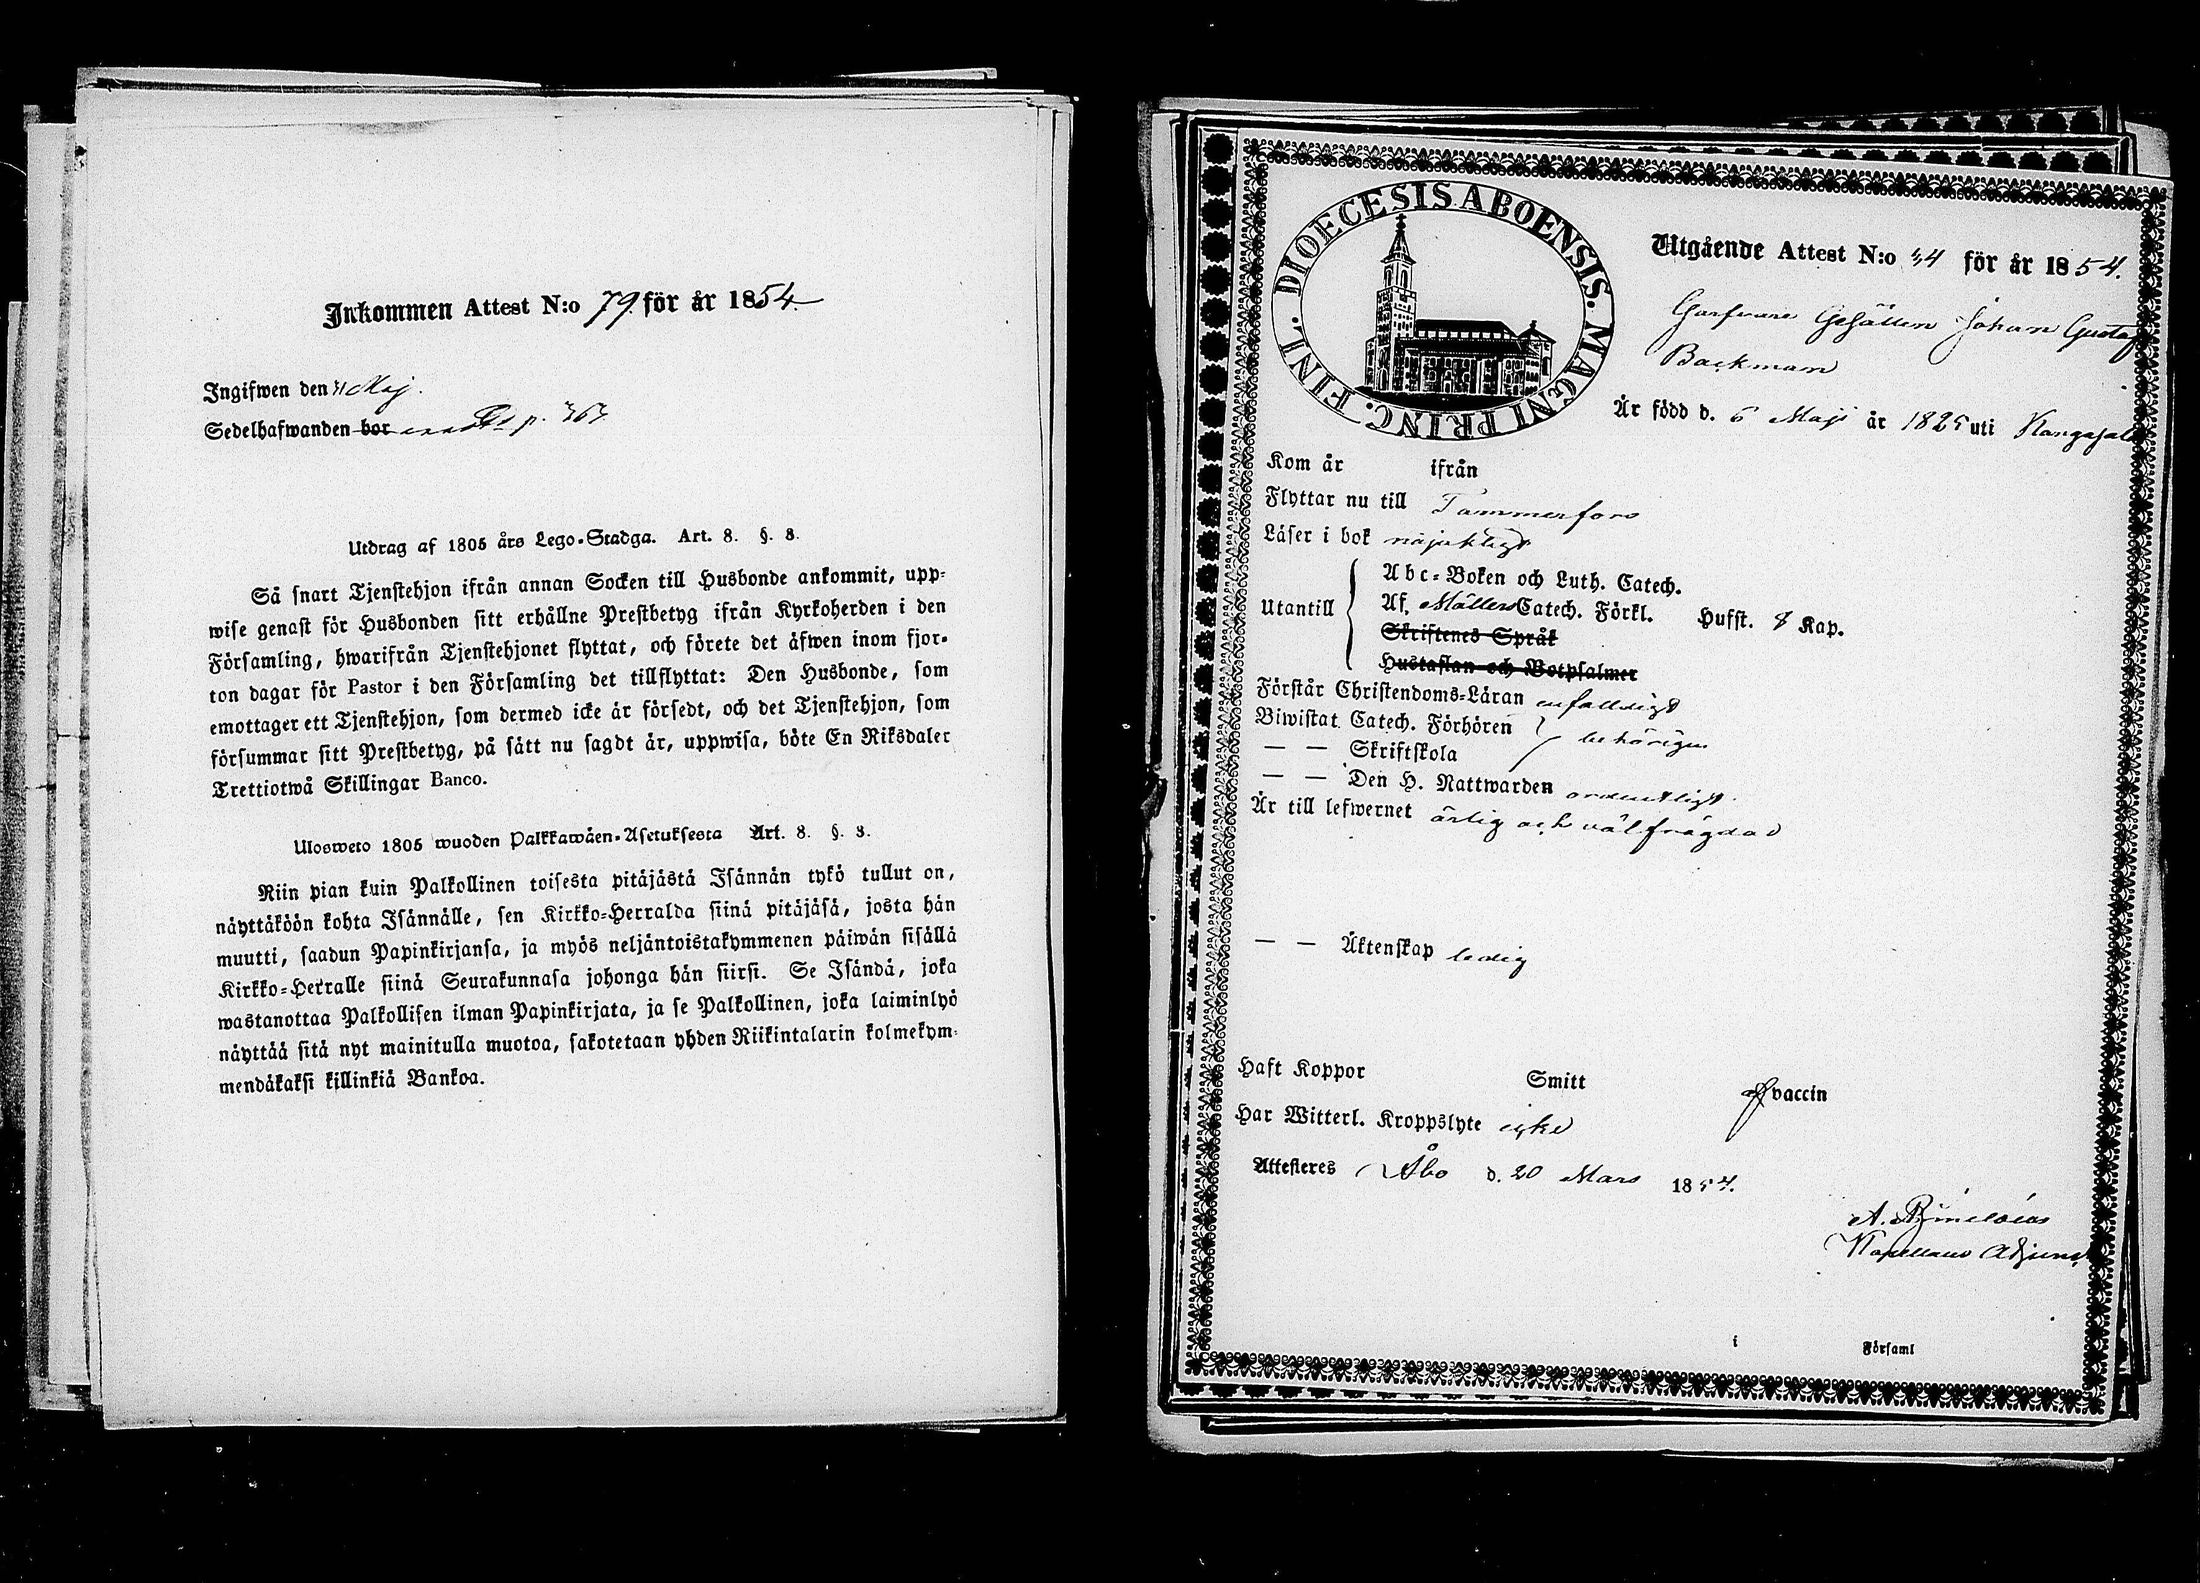 Inkommen Attest N:o 79. för år 1854.
Ingifwen den Maj.
Sedelhafwanden bor p. 363
Utdrag af 1805 års Lego-Stadga. Art. 8. §. 8.
Så snart Tjenstehjon ifrån annan Socken till Husbonde ankommit, upp-
wise genast för Husbonden sitt erhållne Prestbetyg ifrån Kyrkoherden i den
Församling, hwarifrån Tjenstehjonet flyttat, och förete det äfwen inom fjor-
ton dagar för Pastor i den Församling det tillflyttat: Den Husbonde, som
emottager ett Tjenstehjon, som dermed icke är försedt, och det Tjenstehjon, som
försummar sitt Prestbetyg, på sätt nu sagdt är, uppwisa, böte En Riksdaler
Trettiotwå Skillingar Banco.
Ulosweto 1805 wuoden Palkkawäen-Asetuksesta Art. 8. §. 8.
Niin pian kuin Palkollinen toisesta pitäjästä Isännän tykö tullut on,
näyttäköön kohta Isännälle, sen Kirkko-Herralda siinä pitäjäsä, josta hän
muutti, saadun Papinkirjansa, ja myös neljäntoistakymmenen päiwän sisällä
Kirkko-Herralle siinä Seurakunnasa johonga hän siirsi. Se Isändä, joka
wastanottaa Palkollisen ilman Papinkirjata, ja se Palkollinen, joka laiminlyö
näyttää sitä nyt mainitulla muotoa, sakotetaan yhden Riikintalarin kolmekym-
mendäkaksi killinkiä Bankoa.
DIOECESIS ABOENSIS. MAGNI PRINC. FINL.
Utgående Attest N:o 44 för år 1854.
Garfvare Gesällen Johan Gustaf
Backman
Är född d. 6 Maji år 1825 uti Kangasala
Kom år ifrån
Flyttar nu till Tammerfors
Läser i bok nöjaktigt
Utantill
Abc-Boken och Luth. Catech.
Af. Möllers Catech. Förkl. Hufst. 8 Kap.
Skriftenes Språk
Hustaflan och Botpsalmer
Förstår Christendoms-Läran enfaldigt
Biwistat Catech. Förhören
— — Skriftskola behörigen
— — Den H. Nattwarden ordentligt.
Är till lefwernet ärlig och välfrägdad
— — Äktenskap ledig
Haft Koppor Smitt af vaccin
Har Witterl. Kroppslyte icke
Attesteres Åbo d. 20 Mars 1854.
A.
Kapellans Adjunct.
i Församl